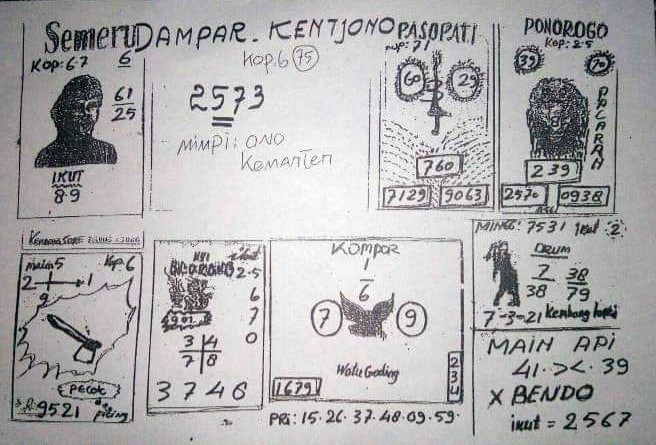 Semeru
KOP: 6-7 6
61
25
IKUT
8-9
DAMPAR. KENTJONO
KOP. 6 75
2573
MIMPI: ONO
Kemanten
PASOPATI
KOP: 71
60 29
760
7129 9063
PONOROGO
KOP: 2-5
39 70
PACARAN
8
239
2570 0938
main 5 Kop. 6
2 1
9
PECOK
9521
2-5
6
7
0
3 4
7 8
3746
KOMPOR
1
6
7 9
Watu Gading
1679
234
PRi: 15-26-37-48-09-59-
MINGG: 7531 ikut 2
DRUM
7 38
38 79
7-3-21 Kembang
MAIN API
41 >< 39
X BENDO
ikut = 2567